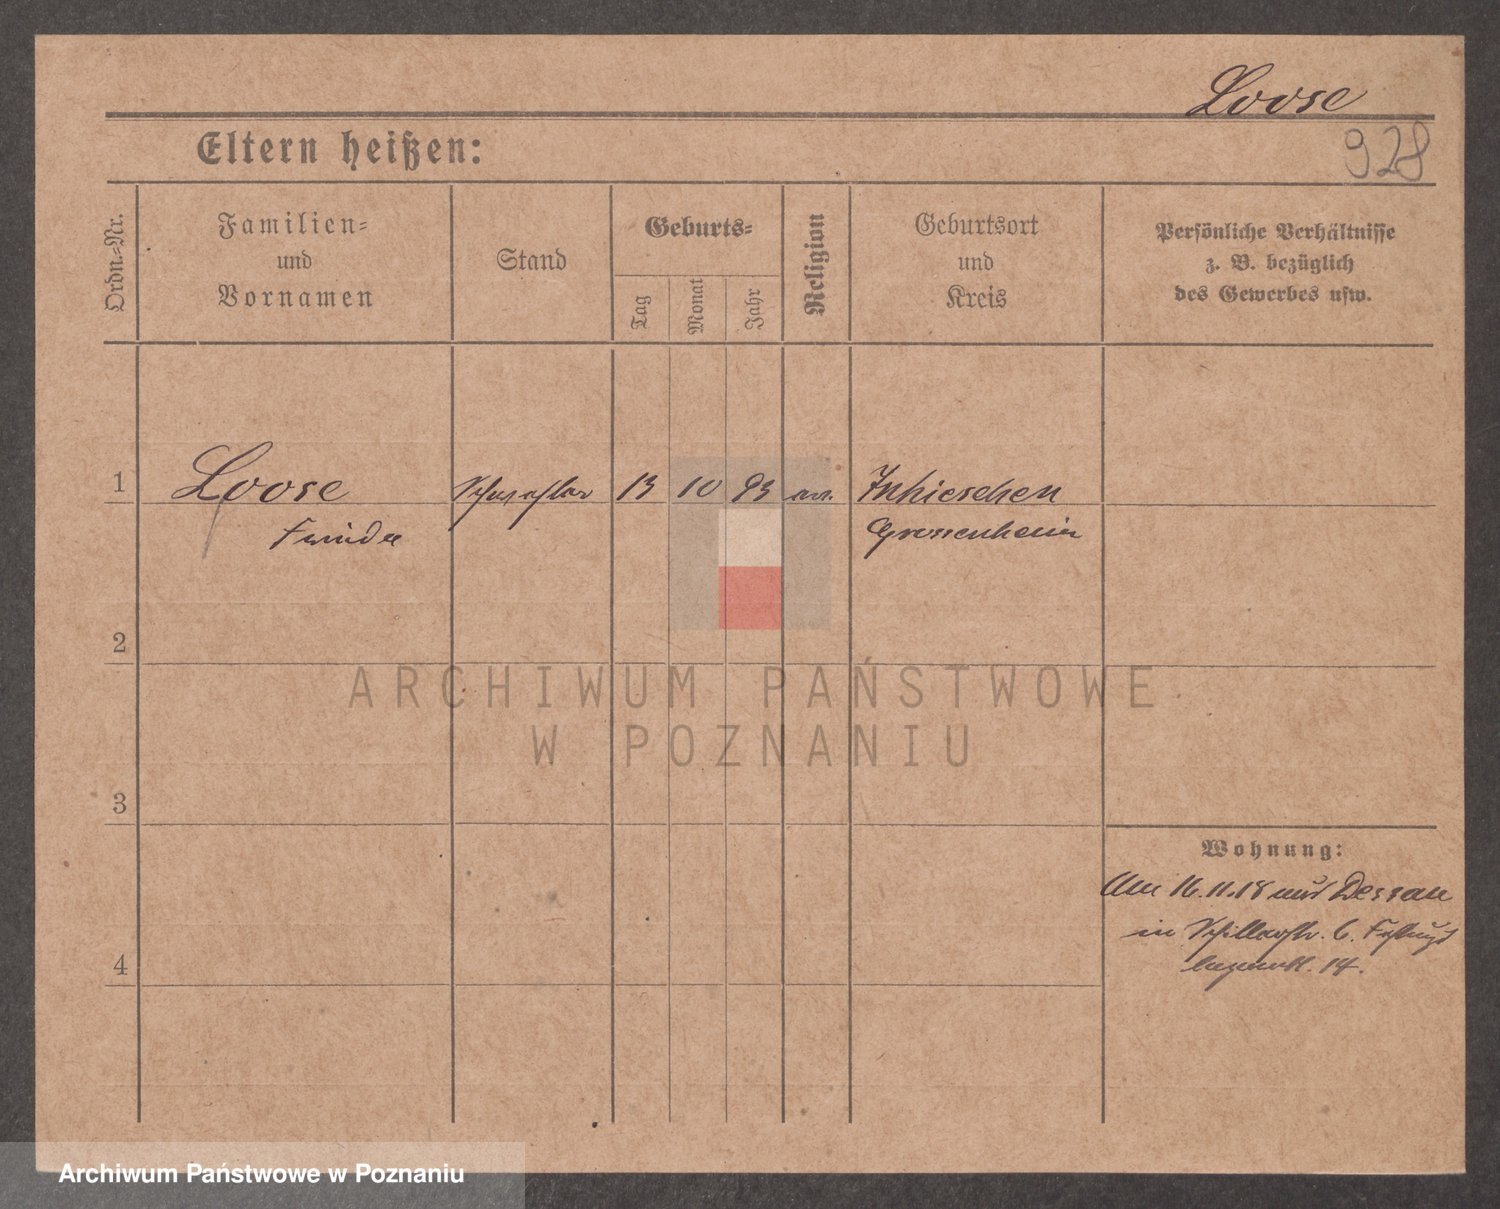 Loose
Eltern heißen:
928
Ordn.-Nr.
Familien-
und
Vornamen
Stand
Geburts-
Tag
Monat
Jahr
Religion
Geburtsort
und
Kreis
Persönliche Verhältnisse
z. B. bezüglich
des Gewerbes usw.
1
Loose
13 10 93
Grossenhain
2
3
4
Wohnung:
Am 16.11.18 aus Dessau
in Schillerstr. 6.
14.
ARCHIWUM PAŃSTWOWE
W POZNANIU
Archiwum Państwowe w Poznaniu